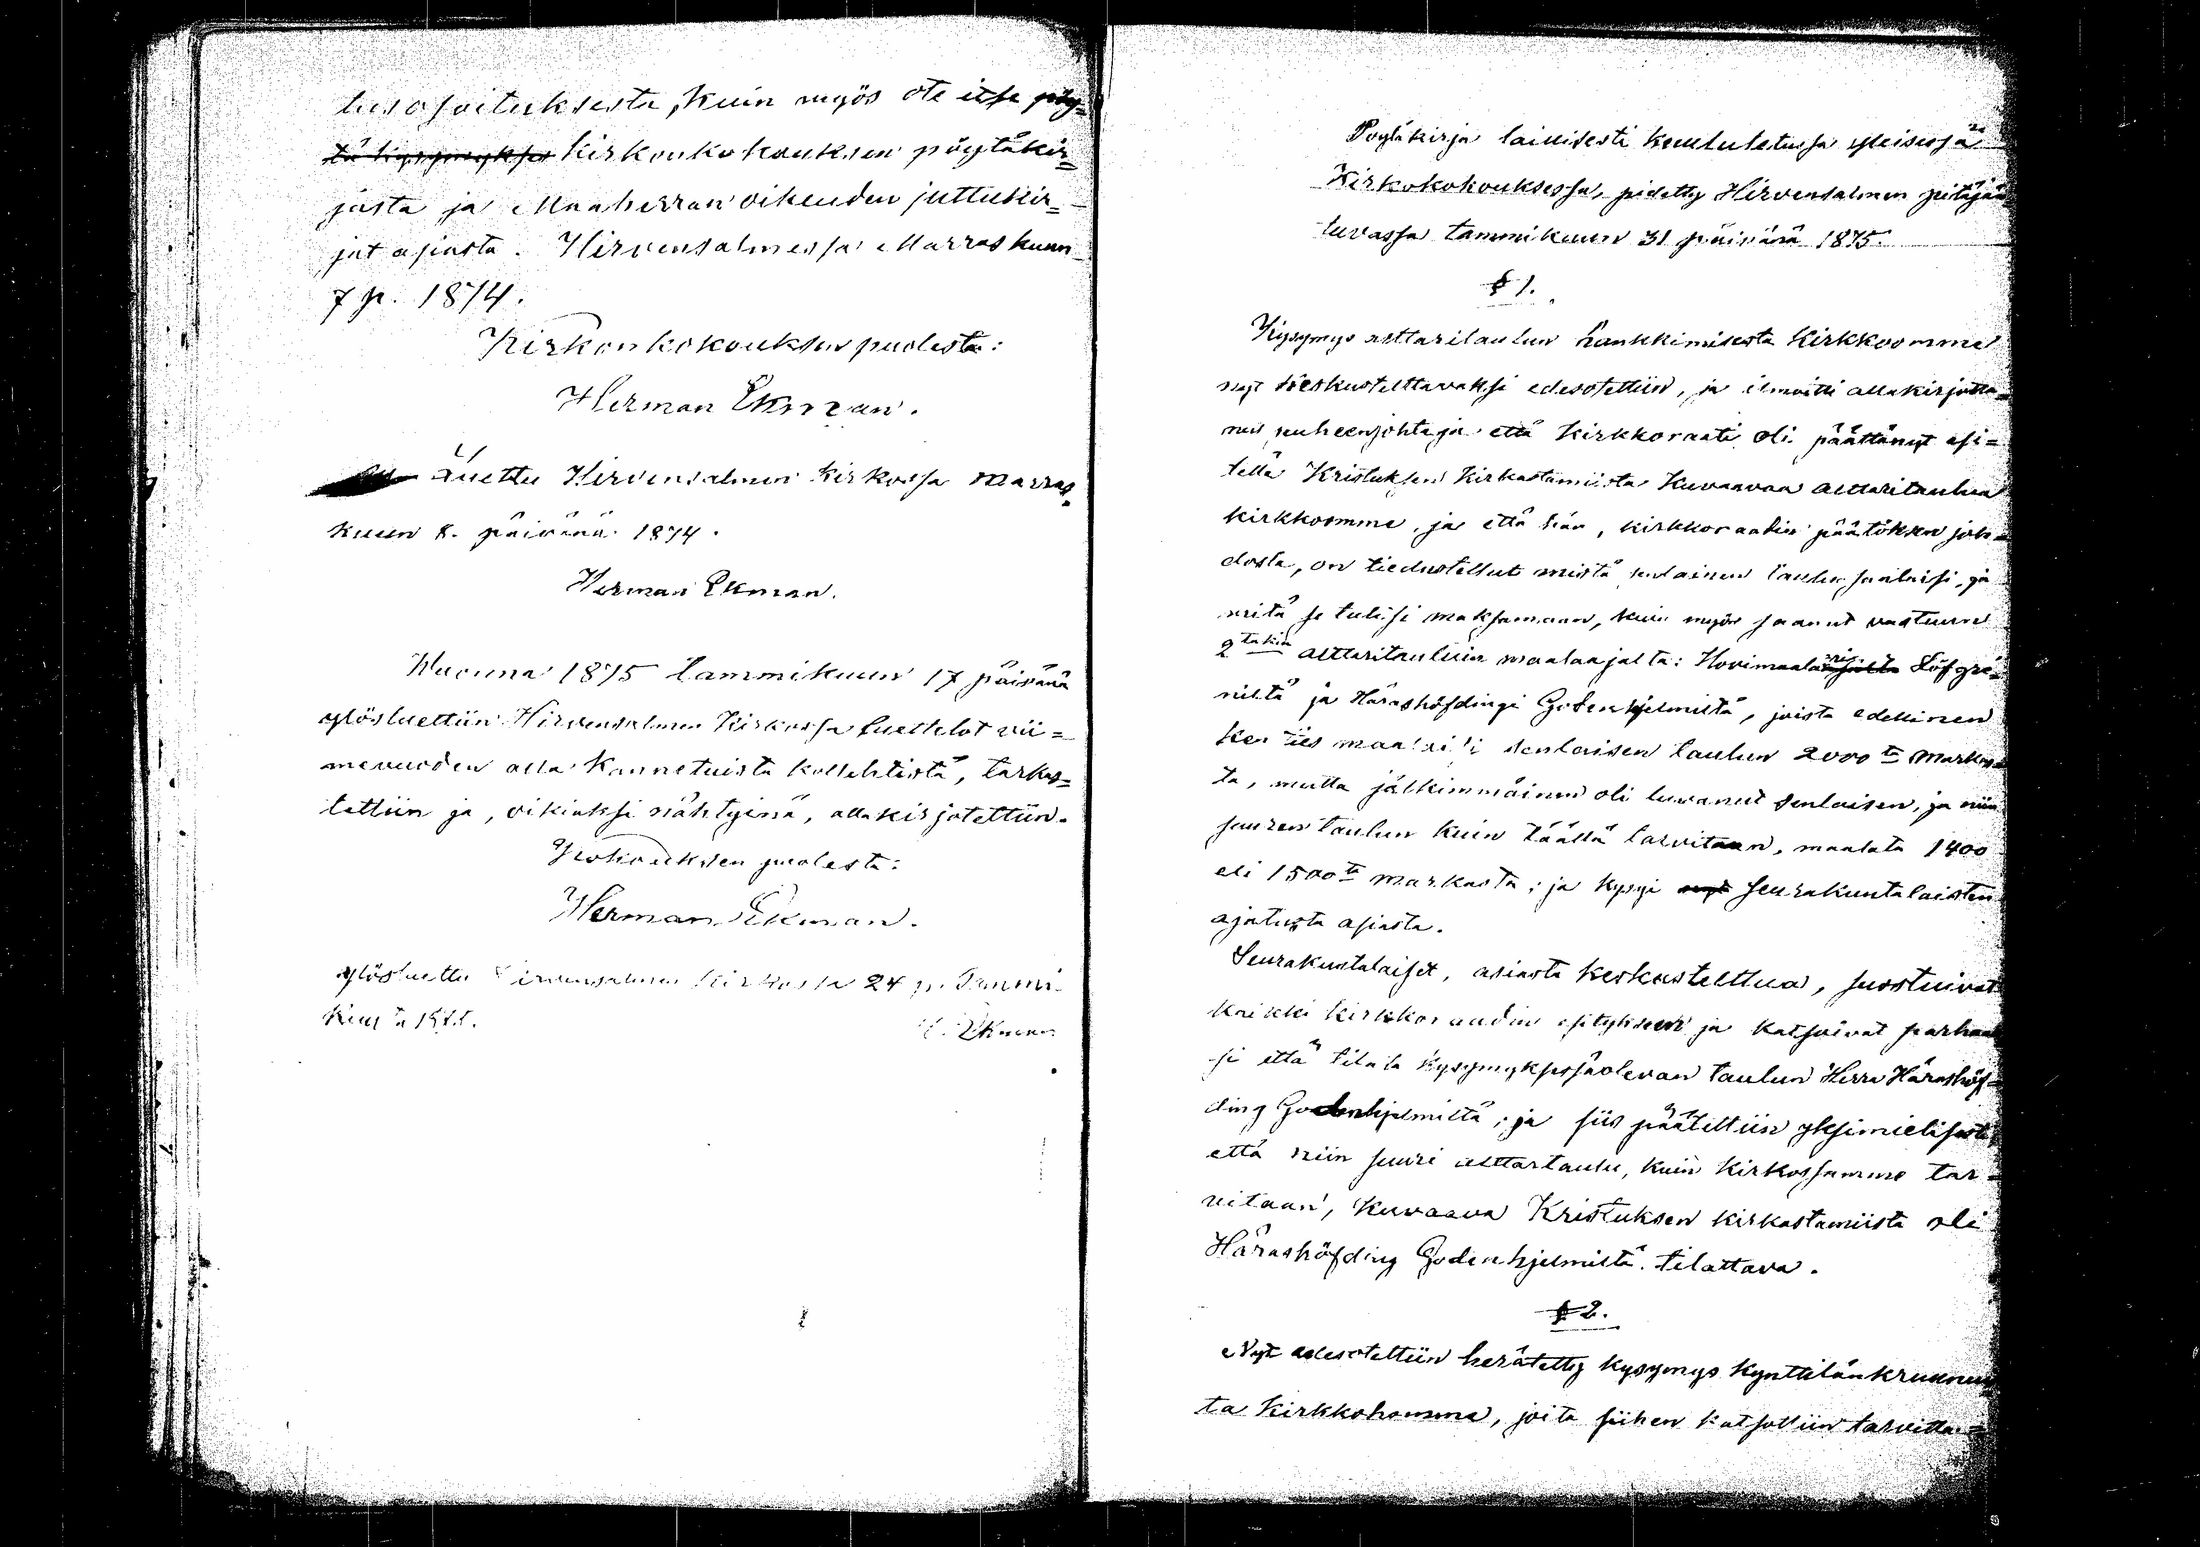 tusosoituksesta, kuin myös ote itse pöy=
tä kysymykses Kirkonkokouksen pöytäkir=
jasta ja Maaherran oikeuden juttukir=
jat asiasta. Hirvensalmessa Marraskuun
7 p. 1874.
Kirkonkokouksen puolesta:
Herman Ekman.
Luettu Hirvensalmen Kirkossa Marras=
kuun 8. päivänä 1874.
Herman Ekman.
Wuonna 1875 tammikuun 17 päivänä
ylösluettiin Hirvensalmen Kirkossa luettelot vii=
mevuoden alla kannetuista kollehtista, tarkas=
tettiin ja, oikiaksi nähtyinä, allakirjotettiin.
Kokouksen puolesta:
Herman Ekman.
ylösluettu Hirvensalmen Kirkossa 24 p. Tammi
kuuta 1875.
H. Ekman
Pöytäkirja laillisesti kuulutetussa yleisessä
Kirkokokouksessa, pidetty Hirvensalmen pitäjän
tuvassa tammikuun 31 päivänä 1875.
§ 1.
Kysymys alttaritaulun hankkimisesta Kirkkoomme
nyt keskusteltavaksi edesotettiin, ja ilmoitti allakirjotta=
nut puheenjohtaja että Kirkkoraati oli päättänyt esi=
tellä Kristuksen Kirkastamista Kuvaavaa alttaritaulua
kirkkoomme, ja että hän, kirkkoraadin päätöksen joh=
dosta, on tiedustellut mistä senlainen taulu saataisi, ja
mitä se tulisi maksamaan, kuin myös saanut vastuun
2 takin alttaritauluin maalaajalta: Hovimaalari Löfgre=
niltä ja Häradshöfdingi Godenhjelmiltä, joista edellinen
kenties maalaisi senlaisen taulun 2000 ta markas=
ta, mutta jälkimmäinen oli luvannut senlaisen, ja niin
suuren taulun kuin täällä tarvitaan, maalata 1400
eli 1500 ta markasta; ja kysyi nyt seurakuntalaisten
ajatusta asiasta.
Seurakuntalaiset, asiasta keskusteltua, suostuivat
kaikki kirkkoraadin esitykseen ja katsoivat parhaak
si että tilata kysymyksessäolevan taulun Herra Häradshöf=
ding Godenhjelmiltä; ja siis päätettiin yksimielisesti,
että niin suuri alttartaulu, kuin Kirkossamme tar=
vitaan, Kuvaava Kristuksen kirkastamista oli
Häradshöfding Godenhjelmiltä tilattava.
§ 2.
Nyt edesotettiin herätetty kysymys Kynttilänkruunuis
ta Kirkkohomme, joita siihen katsottiin tarvitta=